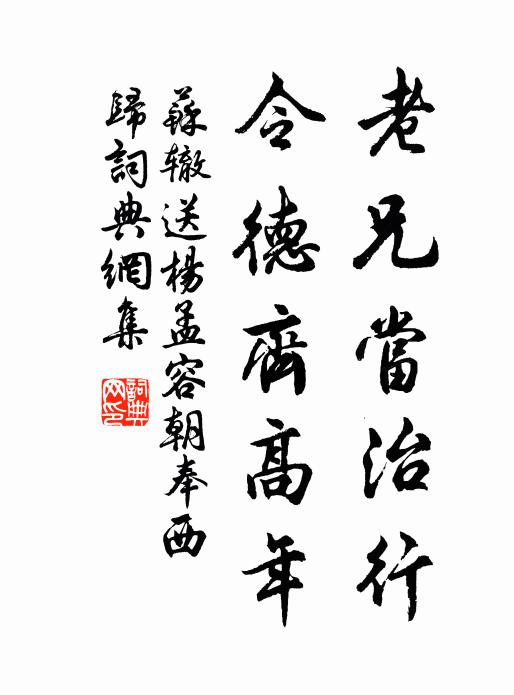 老兄當治行
令德齊高年
蘇轍送楊孟容朝奉西
歸詞典網集
詞典
网印